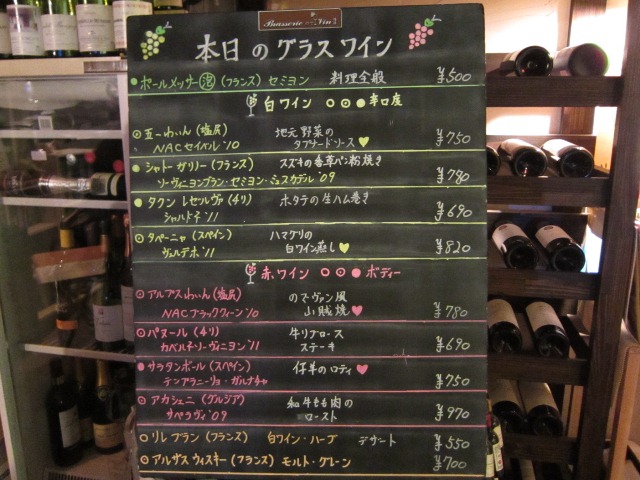 Brasserie のでVin
本日のグラスワイン
ポールメッサー 泡 (フランス) セミヨン 料理全般 ¥500
白ワイン 辛口度
五一わいん (塩尻) 地元野菜の
NACセイベル '10 タプナードソース ¥750
シャトーガリー (フランス) スズキの香草パン粉焼き
ソーヴィニヨンブラン・セミヨン・ミュスカデル '09 ¥780
タクン レセルヴァ (チリ) ホタテの生ハム巻き
シャルドネ '11 ¥690
タペーニャ (スペイン) ハマグリの
ヴェルデホ '11 白ワイン蒸し ¥820
赤ワイン ボディー
アルプスわいん (塩尻) のでヴァン風
NACブラッククィーン '10 山賊焼 ¥780
パヌール (チリ) 牛リブロース
カベルネ・ソーヴィニヨン '11 ステーキ ¥690
サラタンボール (スペイン) 仔羊のロティ
テンプラニーリョ・ガルナチャ ¥750
アカシェニ (グルジア) 和牛もも肉の
サペラヴィ '09 ロースト ¥970
リレ ブラン (フランス) 白ワイン・ハーブ デザート ¥550
アルザスウィスキー (フランス) モルト・グレーン ¥700